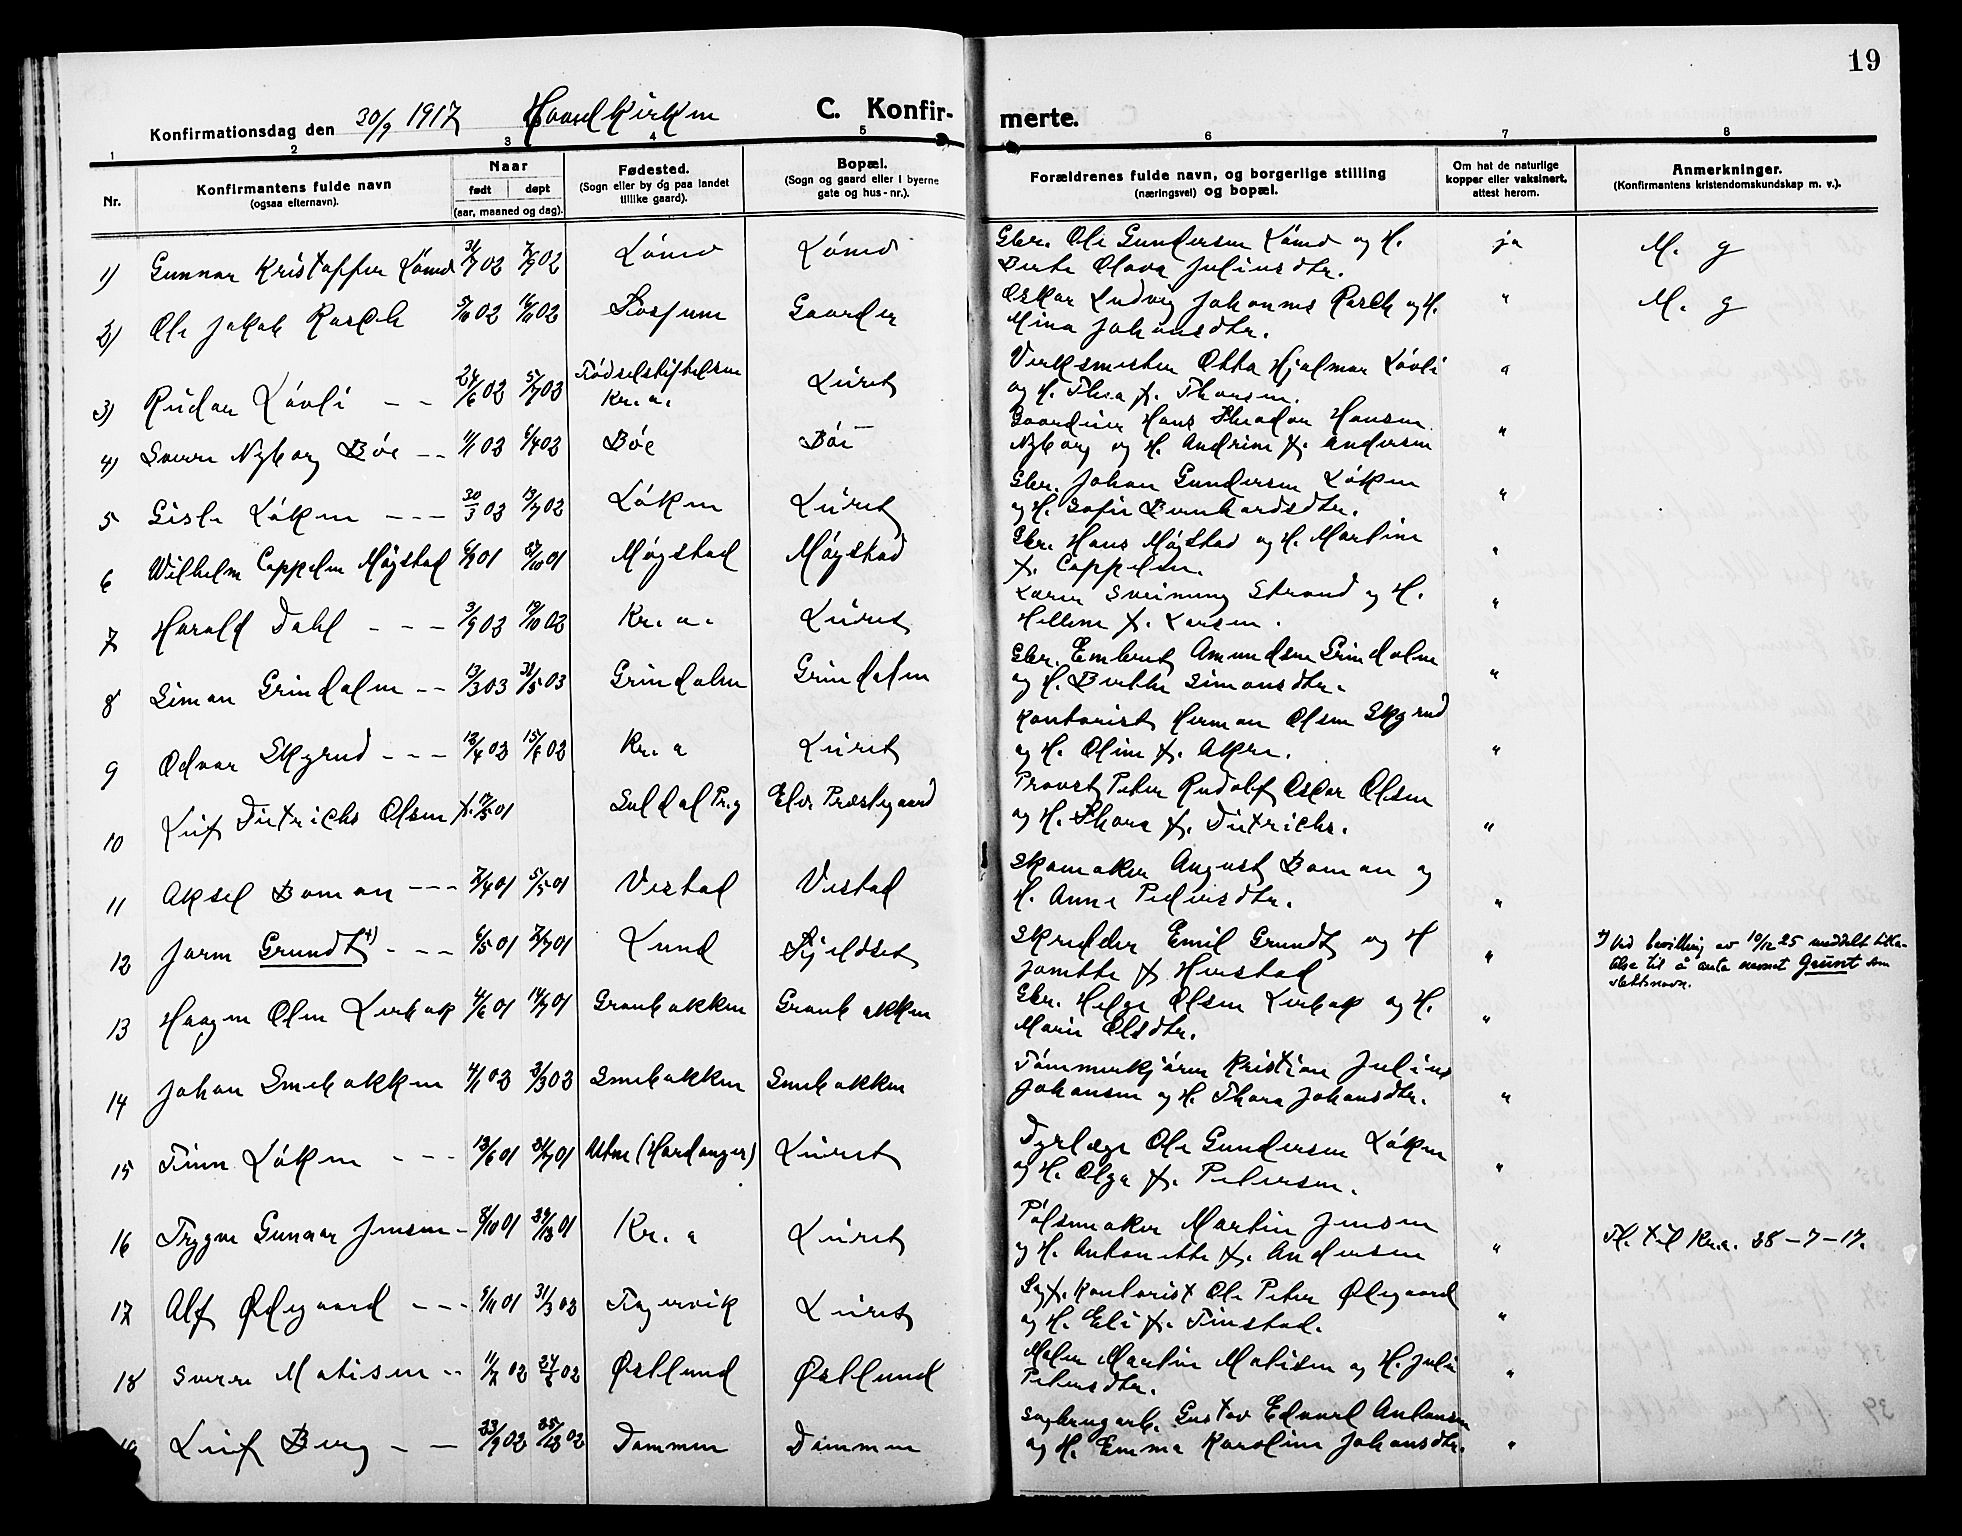 19
Konfirmationsdag den 30/9 1917 Hovedkirken C. Konfir- merte.
1 2 3 4 5 6 7 8
Nr.
Konfirmantens fulde navn
(ogsaa efternavn).
Naar
født døpt
(aar, maaned og dag).
Fødested.
(Sogn eller by og paa landet
tillike gaard).
Bopæl.
(Sogn og gaard eller i byerne
gate og hus-nr.).
Forældrenes fulde navn, og borgerlige stilling
(næringsvei) og bopæl.
Om hat de naturlige
kopper eller vaksinert,
attest herom.
Anmerkninger.
(Konfirmantens kristendomskundskap m. v.).
1) Gunnar Kristoffer Lømo Lømo Lømo Gbr. Ole Gundersen Lømo og H. ja M. g
Berte Olava Juliusdtr.
2) Ole Jakob Rasch 5/10 02 Gaarder Oskar Ludvig Johannes Rasch og H. " M. g
Mina Johansdtr.
3) Reidar Løvli - - Fødselstiftelsen Leiret Verksmester Otto Hjalmar Løvli "
Kr.a. og H. Thea f. Thorsen.
4) Sverre Nyborg Bøe - - Bøe Bøe Gaardeier Hans Theodor Hansen "
Nyborg og H. Andrine f. Andersen
5 Gisle Løken - - - 30/3 03 Løken Leiret Gbr. Johan Gundersen Løken "
og H. Sofie Bernhardsdtr.
6 Wilhelm Cappelen Møystad Møystad Møystad Gbr. Hans Møystad og H. Martine "
f. Cappelen.
7 Harald Dahl - - - Kr. a. Leiret Lærer Sveinung Strand og H. "
Hellene f. Larsen.
8 Simon Grindalen - - 13/3 03 31/5 03 Grindalen Grindalen Gbr. Embret Amundsen Grindalen "
og H. Berthe Simonsdtr.
9 Odvar Skyrud - - - Kr. a Leiret Kontorist Herman Olsen Skyrud "
og H. Oline f. Akre.
10 Leif Dietrichs Olsen Suldal Pr.g Elv. Præstegaard Provst Peter Rudolf Oscar Olsen "
og H. Thora f. Dietrichs.
11 Aksel Boman - - - 7/4 01 5/5 01 Vestad Vestad Skomaker August Boman og "
H. Anne Pedersdtr.
12 Jarm Grundt +) - - - 6/5 01 7/7 01 Lund Kjeldset Skredder Emil Grundt og H "
Janette f Herstad
+) Ved bevilling av 10/12 25 meddelt tilla-
telse til å anta navnet Grunt som
slektsnavn.
13 Haagen Olen Lerbak 4/6 01 14/7 01 Granbakken Granbakken Gbr. Helge Olsen Lerbak og H. "
Marie Olsdtr.
14 Johan Smebakken Smebakken Smebakken Tømmerkjører Kristian Julius
Johansen og H. Thora Johansdtr. "
15 Finn Løken - - - 13/6 01 Utne (Hardanger) Leiret Dyrlæge Ole Gundersen Løken
og H. Olga f. Petersen. "
16 Trygve Gunnar Jensen - 8/10 01 Kr. a Leiret Pølsemaker Martin Jensen
og H. Antonette f. Andersen " Fl. til Kr.a. 28-7-17.
17 Alf Ødegaard - - - 9/11 01 Fagervik Leiret Kontorist Ole Peter Ødegaard
og H. Eli f. Finstad. "
18 Sverre Matisen - - Østlund Østlund Maler Martin Matisen og H. Julie "
Petersdtr.
19 Leif Berg - - 23/9 02 Dammen Dammen Sagbrugarb. Gustav Edvard Antonsen
og H. Emma Karoline Johansdtr. "